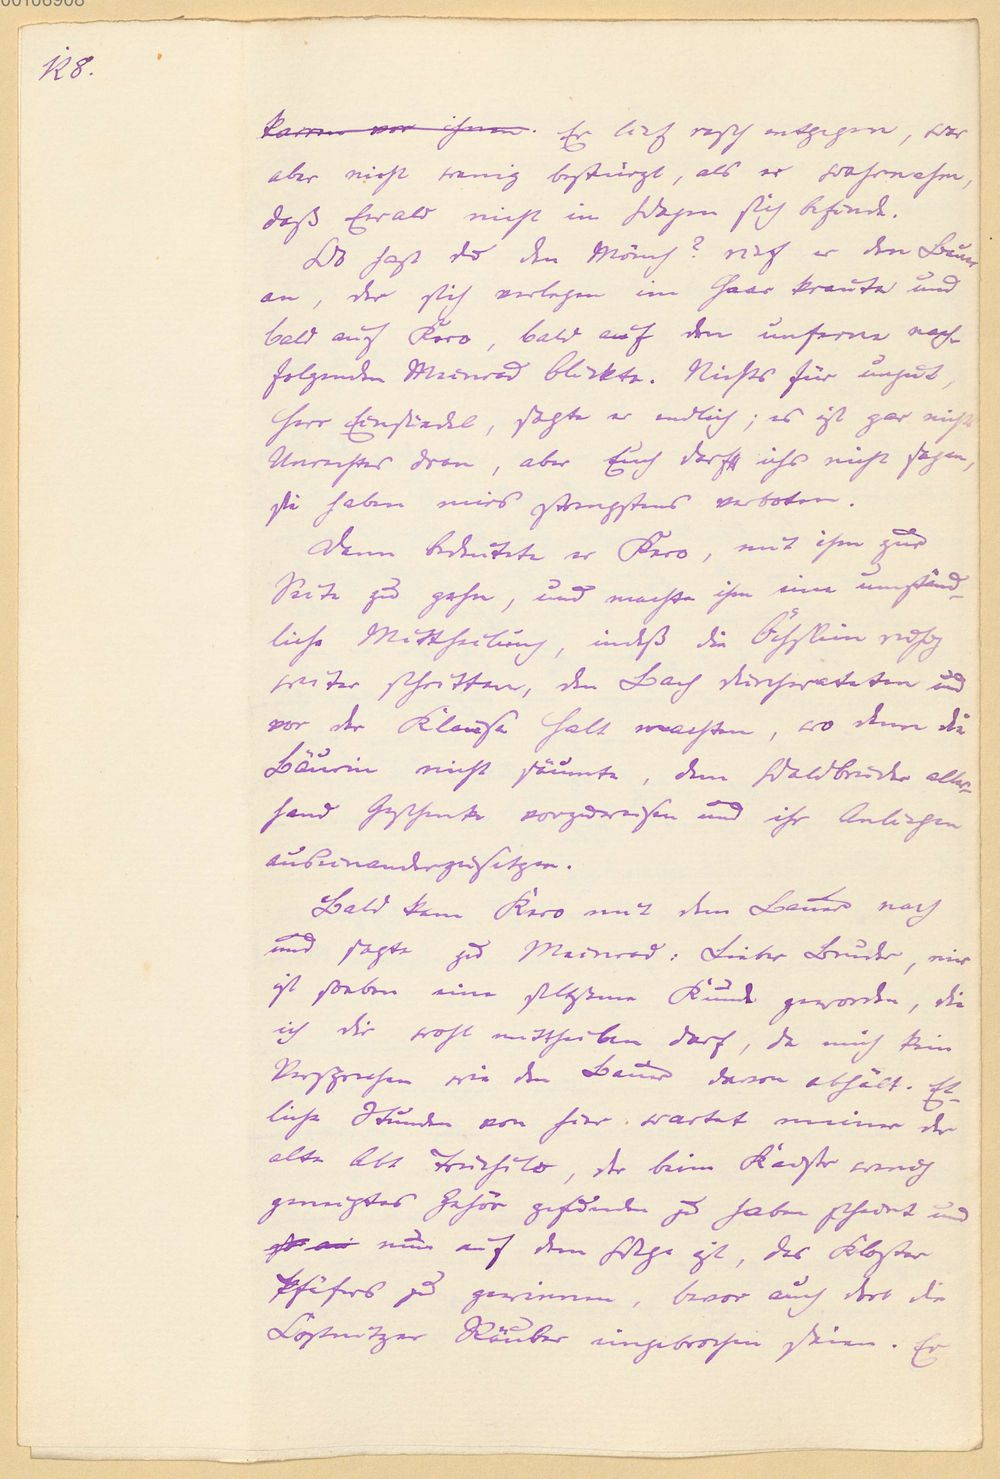 00106908
128.
karren vor ihnen. Er lief rasch entgegen, war
aber nicht wenig bestürzt, als er wahrnahm,
daß Ewald nicht im Wagen sich befinde.
Wo hast du den Mönch? rief er den Bauer
an, der sich verlegen im Haar kraute und
bald auf Kero, bald auf den unferne nach-
folgenden Meinrad blickte. Nichts für ungut,
Herr Einsiedel, sagte er endlich; es ist gar nichts
Unrechtes dran, aber Euch darf ichs nicht sagen,
sie haben mirs strengstens verboten.
Dann bedeutete er Kero, mit ihm zur
Seite zu gehn, und machte ihm eine umständ-
liche Mittheilung, indeß die Öchslein ruhig
weiter schritten, den Bach durchwateten und
vor der Klause Halt machten, wo denn die
Bäurin nicht säumte, dem Waldbruder aller-
hand Geschenke vorzuweisen und ihr Anliegen
auseinanderzusetzen.
Bald kam Kero mit dem Bauer nach
und sagte zu Meinrad: Lieber Bruder, mir
ist soeben eine seltsame Kunde geworden, die
ich dir wohl mittheilen darf, da mich kein
Versprechen wie den Bauer davon abhält. Et-
liche Stunden von hier wartet meiner der
alte Abt Truhilo, der beim Kaiser wenig
geneigtes Gehör gefunden zu haben scheint und
nun auf dem Wege ist, das Kloster
Pfäfers zu gewinnen, bevor auch dort die
Costnitzer Räuber eingebrochen seien. Er